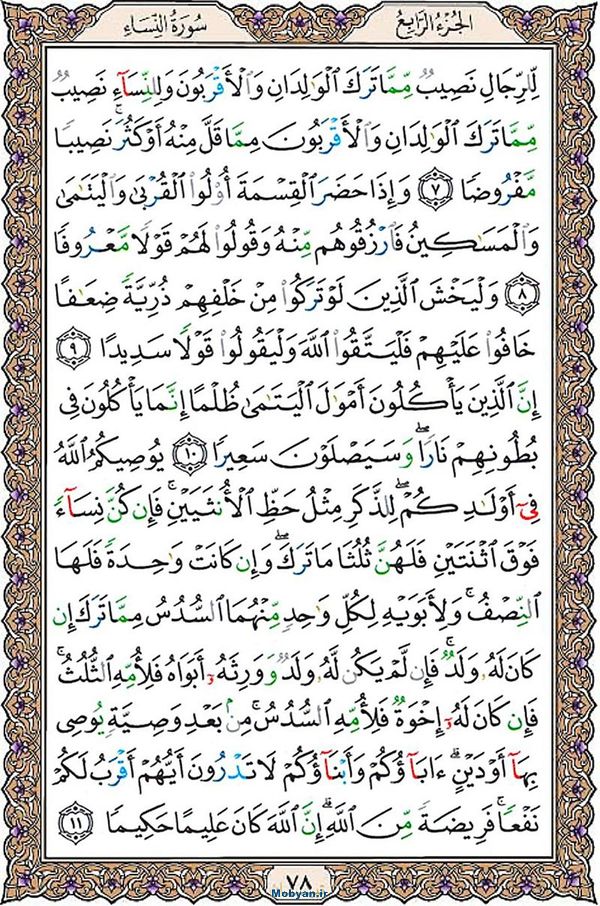 الجُزءُ الرَّابِعُ
سُورَةُ النِّسَاءِ
لِّلرِّجَالِ نَصِيبٌ مِّمَّا تَرَكَ ٱلْوَٰلِدَانِ وَٱلْأَقْرَبُونَ وَلِلنِّسَآءِ نَصِيبٌ
مِّمَّا تَرَكَ ٱلْوَٰلِدَانِ وَٱلْأَقْرَبُونَ مِمَّا قَلَّ مِنْهُ أَوْ كَثُرَ ۚ نَصِيبًا
مَّفْرُوضًا ٧ وَإِذَا حَضَرَ ٱلْقِسْمَةَ أُو۟لُوا۟ ٱلْقُرْبَىٰ وَٱلْيَتَٰمَىٰ
وَٱلْمَسَٰكِينُ فَٱرْزُقُوهُم مِّنْهُ وَقُولُوا۟ لَهُمْ قَوْلًا مَّعْرُوفًا
٨ وَلْيَخْشَ ٱلَّذِينَ لَوْ تَرَكُوا۟ مِنْ خَلْفِهِمْ ذُرِّيَّةً ضِعَٰفًا
خَافُوا۟ عَلَيْهِمْ فَلْيَتَّقُوا۟ ٱللَّهَ وَلْيَقُولُوا۟ قَوْلًا سَدِيدًا ٩
إِنَّ ٱلَّذِينَ يَأْكُلُونَ أَمْوَٰلَ ٱلْيَتَٰمَىٰ ظُلْمًا إِنَّمَا يَأْكُلُونَ فِى
بُطُونِهِمْ نَارًا ۖ وَسَيَصْلَوْنَ سَعِيرًا ١٠ يُوصِيكُمُ ٱللَّهُ
فِىٓ أَوْلَٰدِكُمْ ۖ لِلذَّكَرِ مِثْلُ حَظِّ ٱلْأُنثَيَيْنِ ۚ فَإِن كُنَّ نِسَآءً
فَوْقَ ٱثْنَتَيْنِ فَلَهُنَّ ثُلُثَا مَا تَرَكَ ۖ وَإِن كَانَتْ وَٰحِدَةً فَلَهَا
ٱلنِّصْفُ ۚ وَلِأَبَوَيْهِ لِكُلِّ وَٰحِدٍ مِّنْهُمَا ٱلسُّدُسُ مِمَّا تَرَكَ إِن
كَانَ لَهُۥ وَلَدٌ ۚ فَإِن لَّمْ يَكُن لَّهُۥ وَلَدٌ وَوَرِثَهُۥٓ أَبَوَاهُ فَلِأُمِّهِ ٱلثُّلُثُ ۚ
فَإِن كَانَ لَهُۥٓ إِخْوَةٌ فَلِأُمِّهِ ٱلسُّدُسُ ۚ مِنۢ بَعْدِ وَصِيَّةٍ يُوصِى
بِهَآ أَوْ دَيْنٍ ۗ ءَابَآؤُكُمْ وَأَبْنَآؤُكُمْ لَا تَدْرُونَ أَيُّهُمْ أَقْرَبُ لَكُمْ
نَفْعًا ۚ فَرِيضَةً مِّنَ ٱللَّهِ ۗ إِنَّ ٱللَّهَ كَانَ عَلِيمًا حَكِيمًا ١١
٧٨
Mobyan.ir